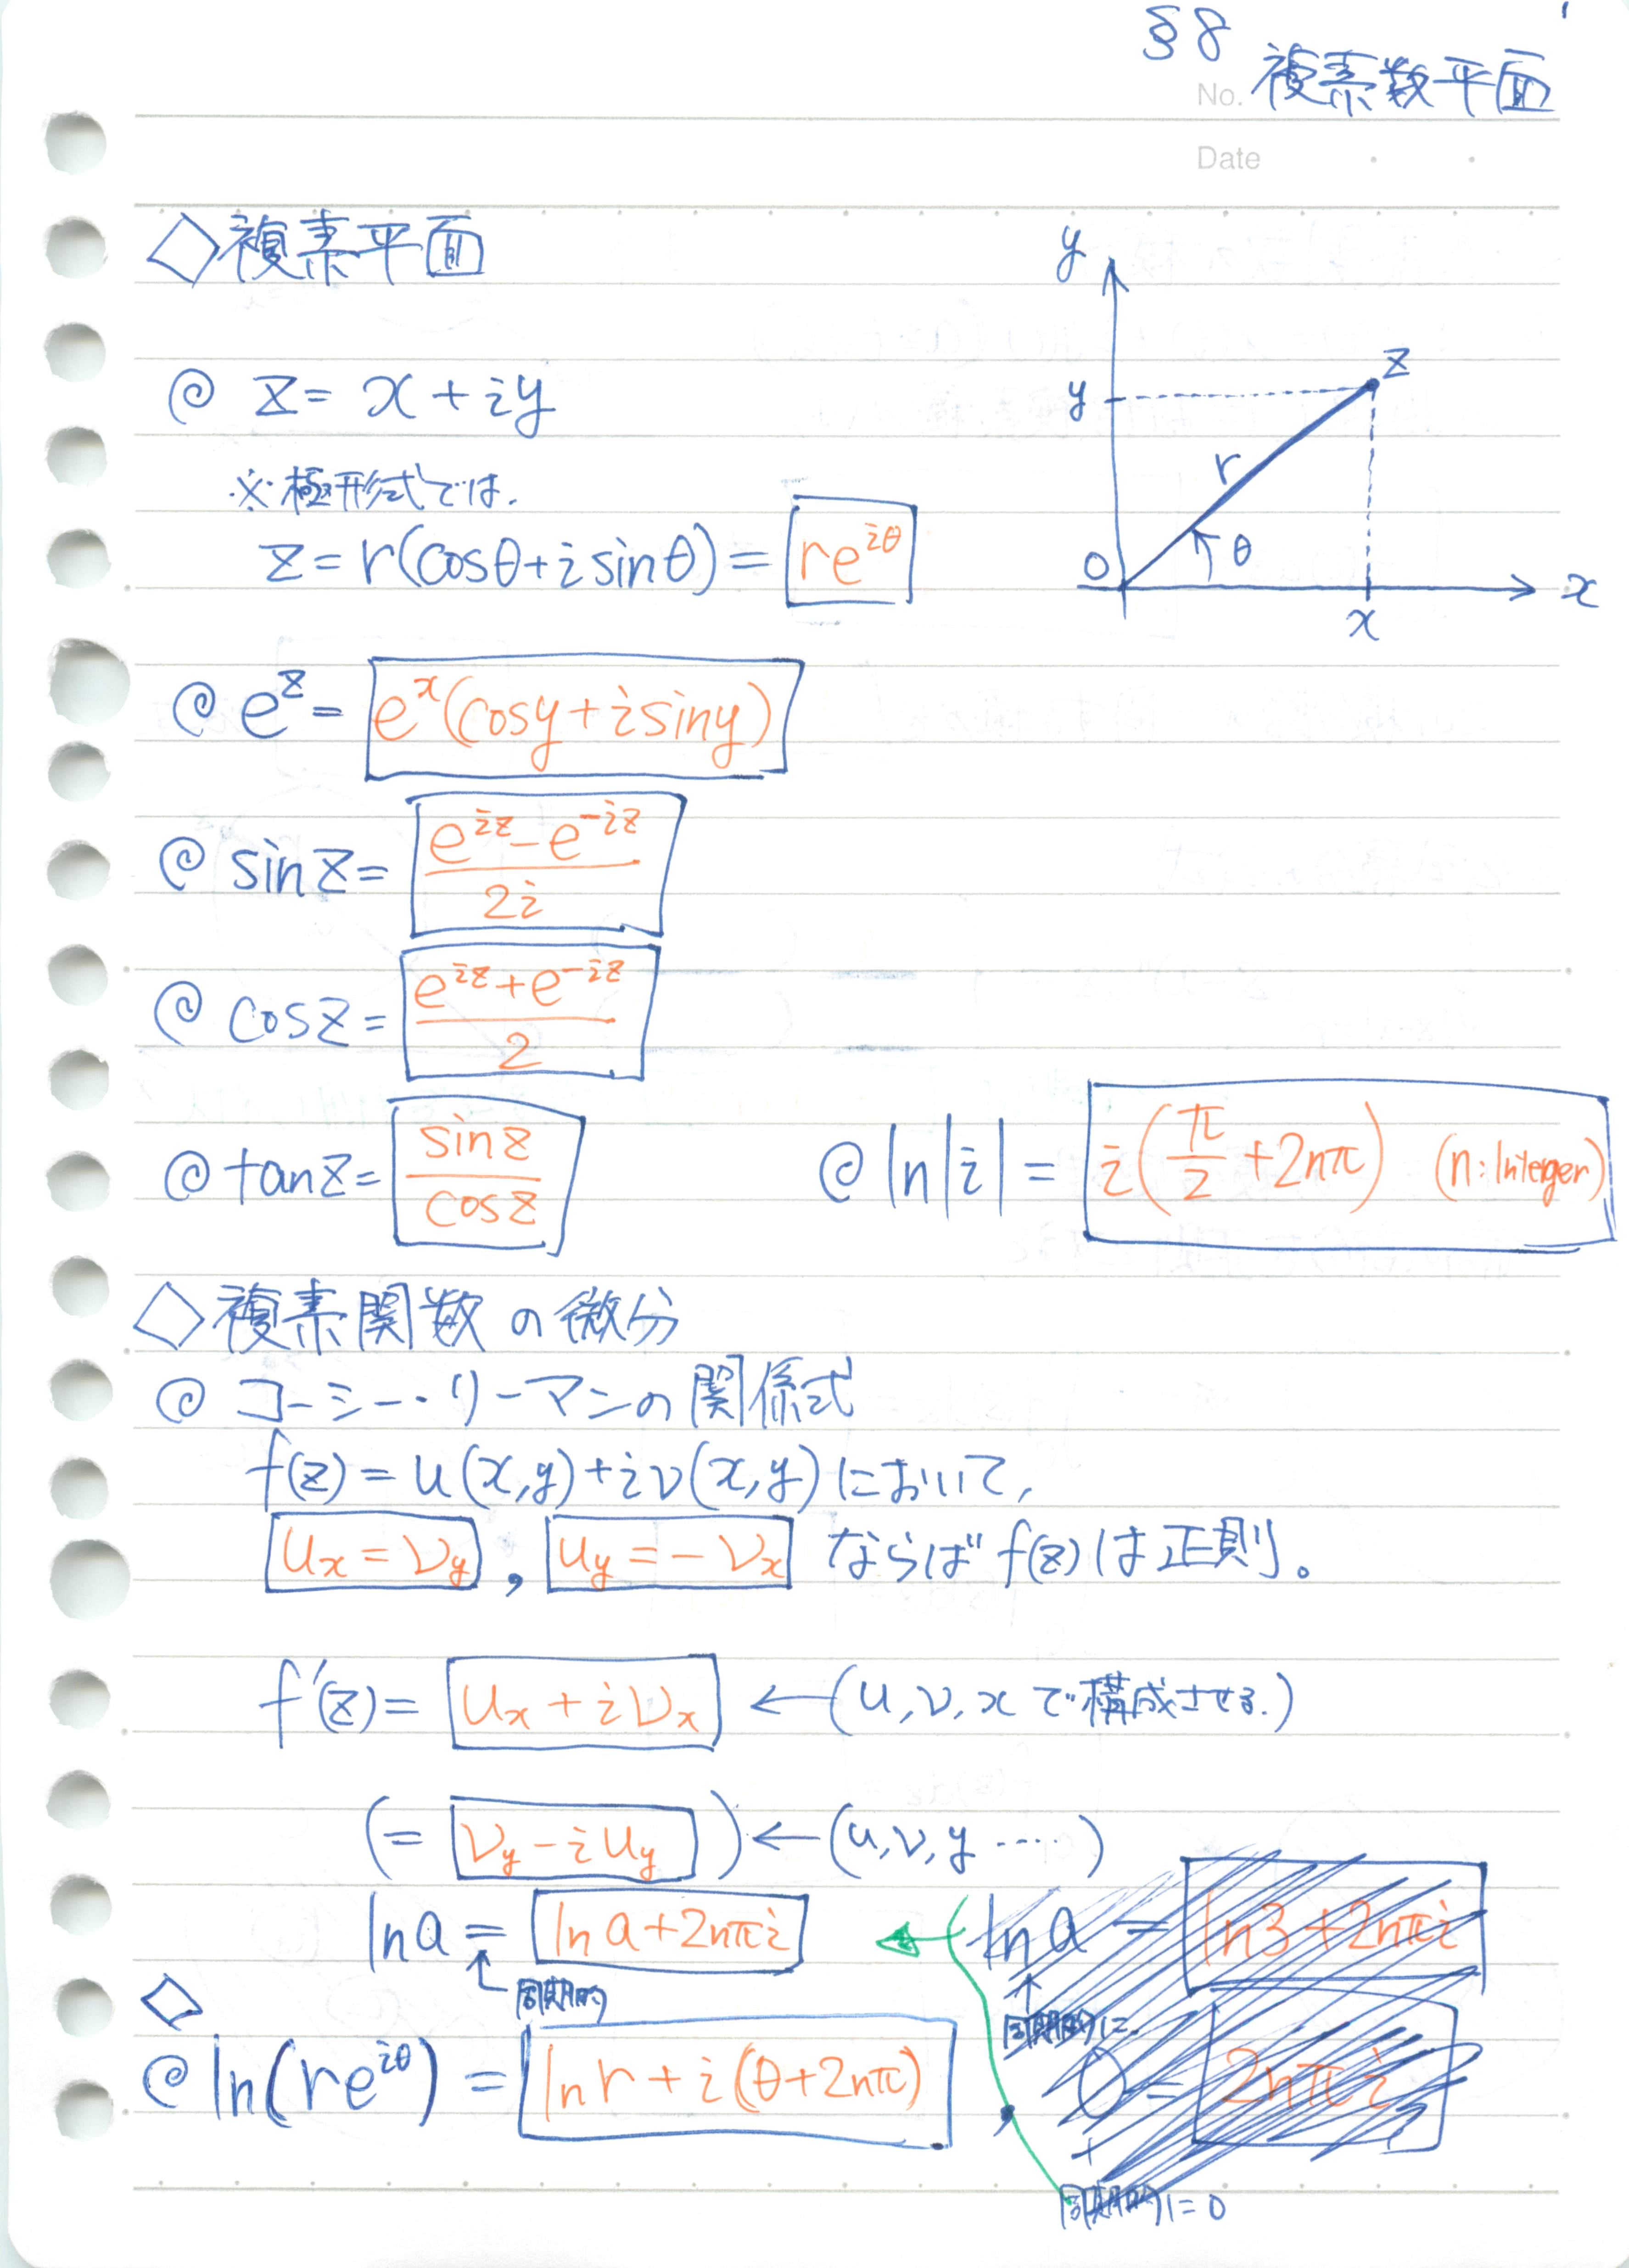 §8
No. 複素数平面
Date
◇複素平面
@ z = x + iy
※極形式では、
z = r(cosθ + i sinθ) = re^{iθ}
y
y
z
r
θ
O
x
x
@ e^z = e^x(cosy + i siny)
@ sinz = (e^{iz} - e^{-iz})/2i
@ cosz = (e^{iz} + e^{-iz})/2
@ tanz = sinz/cosz
@ ln|i| = i(π/2 + 2nπ) (n: Integer)
◇複素関数の微分
@ コーシー・リーマンの関係式
f(z) = u(x,y) + iν(x,y)において,
u_x = ν_y , u_y = -ν_x ならば f(z)は正則。
f'(z) = u_x + iν_x ←(u,ν,xで構成させる.)
(= ν_y - iu_y) ←(u,ν,y ‥‥)
lna = lna + 2nπi
同期的
lna = ln3 + 2nπi
同期的に
◇
@ ln(re^{iθ}) = lnr + i(θ + 2nπ)
0 = 2nπi
同期的に0